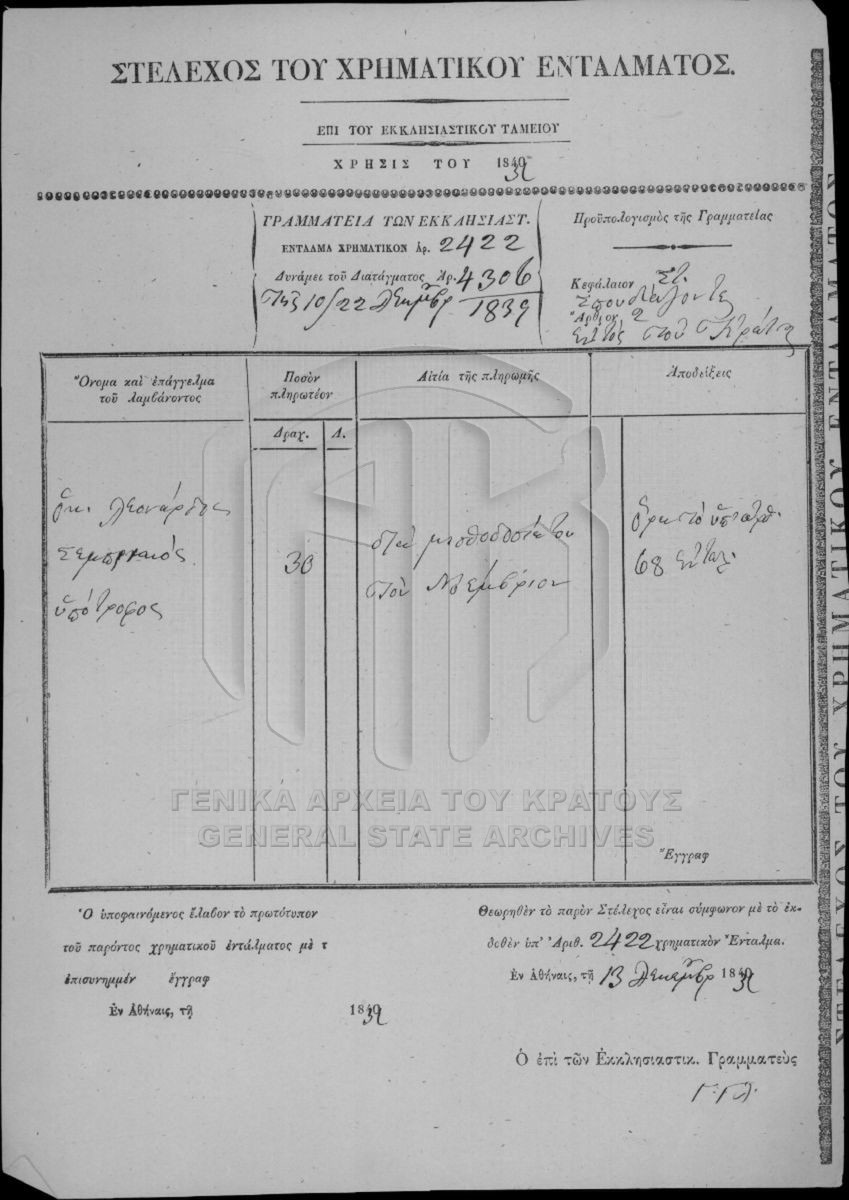 ΣΤΕΛΕΧΟΣ ΤΟΥ ΧΡΗΜΑΤΙΚΟΥ ΕΝΤΑΛΜΑΤΟΣ.
ΕΠΙ ΤΟΥ ΕΚΚΛΗΣΙΑΣΤΙΚΟΥ ΤΑΜΕΙΟΥ
ΧΡΗΣΙΣ ΤΟΥ 1839
ΓΡΑΜΜΑΤΕΙΑ ΤΩΝ ΕΚΚΛΗΣΙΑΣΤ.
ΕΝΤΑΛΜΑ ΧΡΗΜΑΤΙΚΟΝ Ἀρ. 2422
Δυνάμει τοῦ Διατάγματος Ἀρ. 4306
τῆς 10/22 Δεκεμβρ 1839
Προϋπολογισμὸς τῆς Γραμματείας
Κεφάλαιον Στ.
Σπουδάζοντες
Ἄρθρον 2
ἐντὸς τοῦ Κράτους
Ὄνομα καὶ ἐπάγγελμα
τοῦ λαμβάνοντος
Ποσὸν
πληρωτέον
Δραχ. Λ.
Αἰτία τῆς πληρωμῆς
Ἀποδείξεις
Λεονάρδος
ὑπότροφος
30
μισθοδοσία του
τὸν Νοέμβριον
68 ἐνταλ.
Ἔγγραφ
Ὁ ὑποφαινόμενος ἔλαβον τὸ πρωτότυπον
τοῦ παρόντος χρηματικοῦ ἐντάλματος μὲ τ
ἐπισυνημμέν ἔγγραφ
Ἐν Ἀθήναις, τῇ 1839
Θεωρηθὲν τὸ παρὸν Στέλεχος εἶναι σύμφωνον μὲ τὸ ἐκ-
δοθὲν ὑπ' Ἀριθ. 2422 χρηματικὸν Ἔνταλμα.
Ἐν Ἀθήναις, τῇ 13 Δεκεμβρ 1839
Ὁ ἐπὶ τῶν Ἐκκλησιαστικ. Γραμματεὺς
ΓΕΝΙΚΑ ΑΡΧΕΙΑ ΤΟΥ ΚΡΑΤΟΥΣ
GENERAL STATE ARCHIVES
ΣΤΕΛΕΧΟΣ ΤΟΥ ΧΡΗΜΑΤΙΚΟΥ ΕΝΤΑΛΜΑΤΟΣ